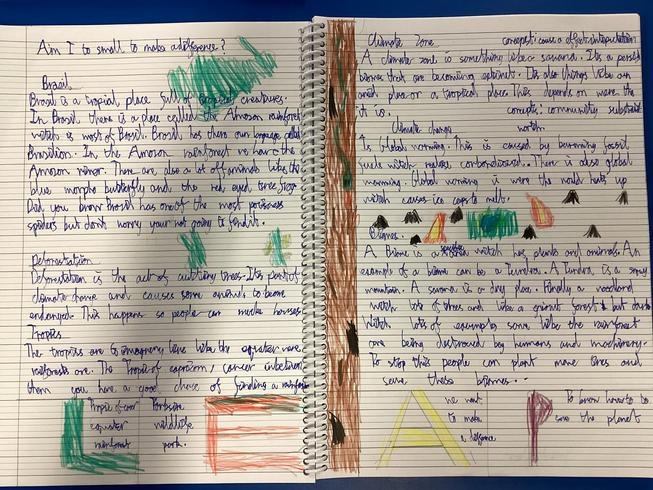 Aim I to small to make a difference?
Brasil
Brasil is a tropial place full of tropical creatures.
In Brasil there is a place called the Amoson rainforest
witch is most of Brasil. Brasil has there own language called
Brasilion. In the Amoson rainforest we have the
Amoson river. There are also a lot of animals like the
blue morpho butterfly and the red eyed tree frog.
Did you know Brasil has one of the most poisness
spiders but dont worry your not going to find it.
Deforestation
Deforestation is the act of cutting trees. Its part of
climate change and causes some animals to become
endanged. This happens so people can make houses
Tropics
The tropics are imaginery lines like the equater were
rainforests are. The Tropic of capricorn, cancer inbetween
them you have a good chance of finding a rainforest
L
Tropic of
equater
rainforest
Yorkshire
wildlife
park.
Climate Zone
concept: cause & effect interpretation
A climate zone is something like a savana. Its a
bioms that are becoming extinct. Its also things like an
arid place or a tropical place. This depends on were the
it is.
concepts: community
Climate change
Is Global worming. This is caused by burning fossil
fuels witch makes carbondioxed. There is also global
worming. Global worming is were the world heats up
witch causes ice caps to melt.
Biomes.
A Biome is a witch has plants and animals. An
example of a biome can be a Tundra. A Tundra is a snowy
mountain. A savana is a dry place. Finaly a woodland
witch lots of trees and like a giant forest but
Witch lots of some like the rainforest
are being destroyed by humans and machinery.
To stop this people can plant more trees and
save these biomes...
A
we want
to make
a difference
P
To know how to
save the planet